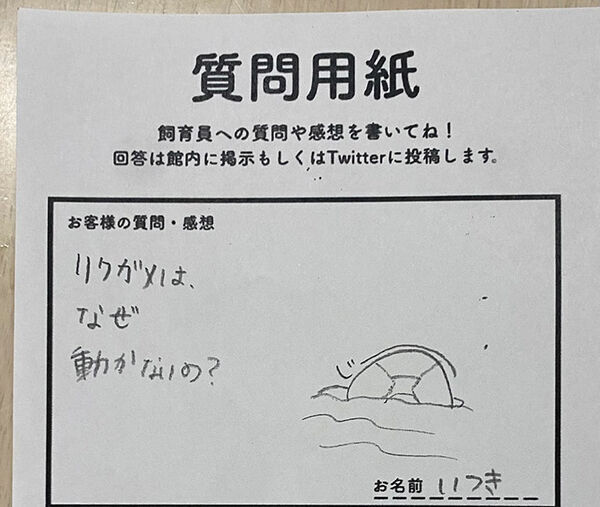 質問用紙
飼育員への質問や感想を書いてね！
回答は館内に掲示もしくはTwitterに投稿します。
お客様の質問・感想
リクガメは、
なぜ
動かないの？
じ
お名前 いつき